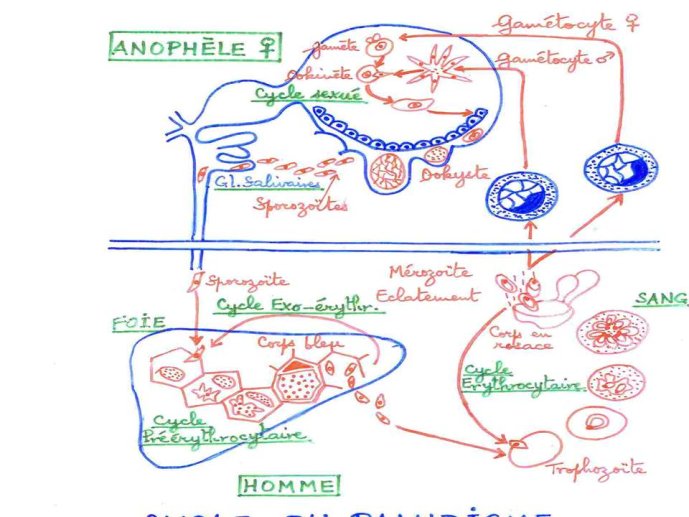 Gamétocyte ♀
ANOPHÈLE ♀
gamète
Gamétocyte ♂
Ookinète
Cycle sexué
Ookyste
Gl. Salivaires
Sporozoïtes
Mérozoïte
Eclatement
Sporozoïte
Cycle Exo-érythr.
SANG
FOIE
Corps en
rosace
Corps bleu
Cycle
Erythrocytaire.
Cycle
Préérythrocytaire.
Trophozoïte
HOMME
CYCLE DU PALUDISME